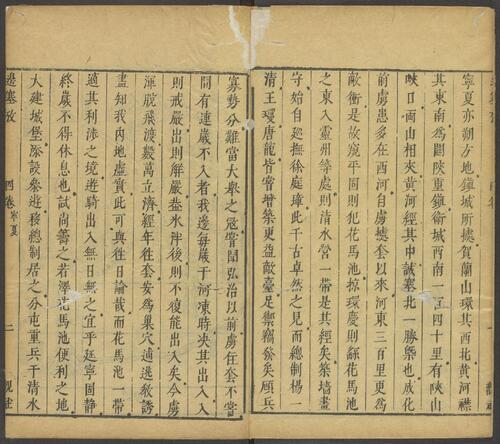 寧夏亦朔方地鎮城所據賀蘭山環其西北黃河襟
其東南為關陝重鎮衛城西南一百四十里有峽山
峽口兩山相夾黃河經其中誠塞北一勝槩也成化
前虜患多在西河自虜據套以來河東三百里更為
敵衝是故窺平固則犯花馬池掠環慶則繇花馬池
之東入靈州等處則清水營一帶是其徑矣築墻畫
守始自巡撫徐廷璋此千古卓然之見而總制楊一
清王瓊唐龍皆嘗增築更益敵臺足禦竊發矣顧兵
寡勢分難當大舉之冦嘗聞弘治以前虜在套不嘗
間有連歲不入者我邊每歲于河凍時決其出入入
則戒嚴出則解嚴蓋氷泮後則不復能出入矣今虜
渾脫飛渡數萬立濟經年住套安為巢穴逋逃敎誘
盡知我內地虛實此可與往日論哉而花馬池一帶
適其利涉之境遊騎出入無日無之宜乎延寧固靜
終歲不得休息也試尚籌之若擇花馬池便利之地
大建城堡添設叅遊移總制居之分屯重兵于清水
邊塞攷
四卷寧夏
二